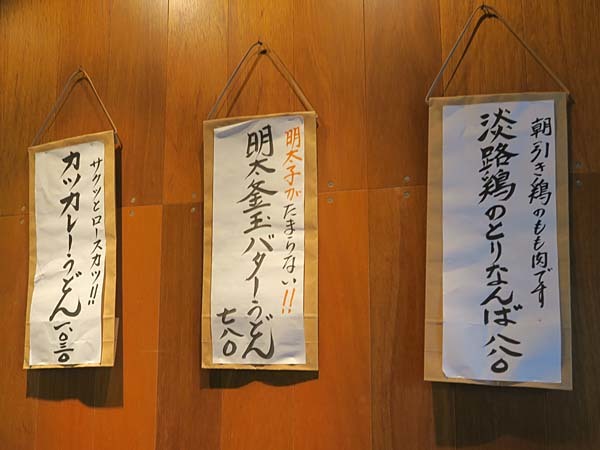 朝引き鶏のもも肉です
淡路鶏のとりなんば 八八〇
明太子がたまらない!!
明太釜玉バターうどん
七八〇
サクッとロースカツ!!
カツカレーうどん
一、〇三〇